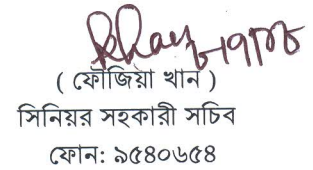 ( ফৌজিয়া খান )
সিনিয়র সহকারী সচিব
ফোন: ৯৫৪০৬৫৪